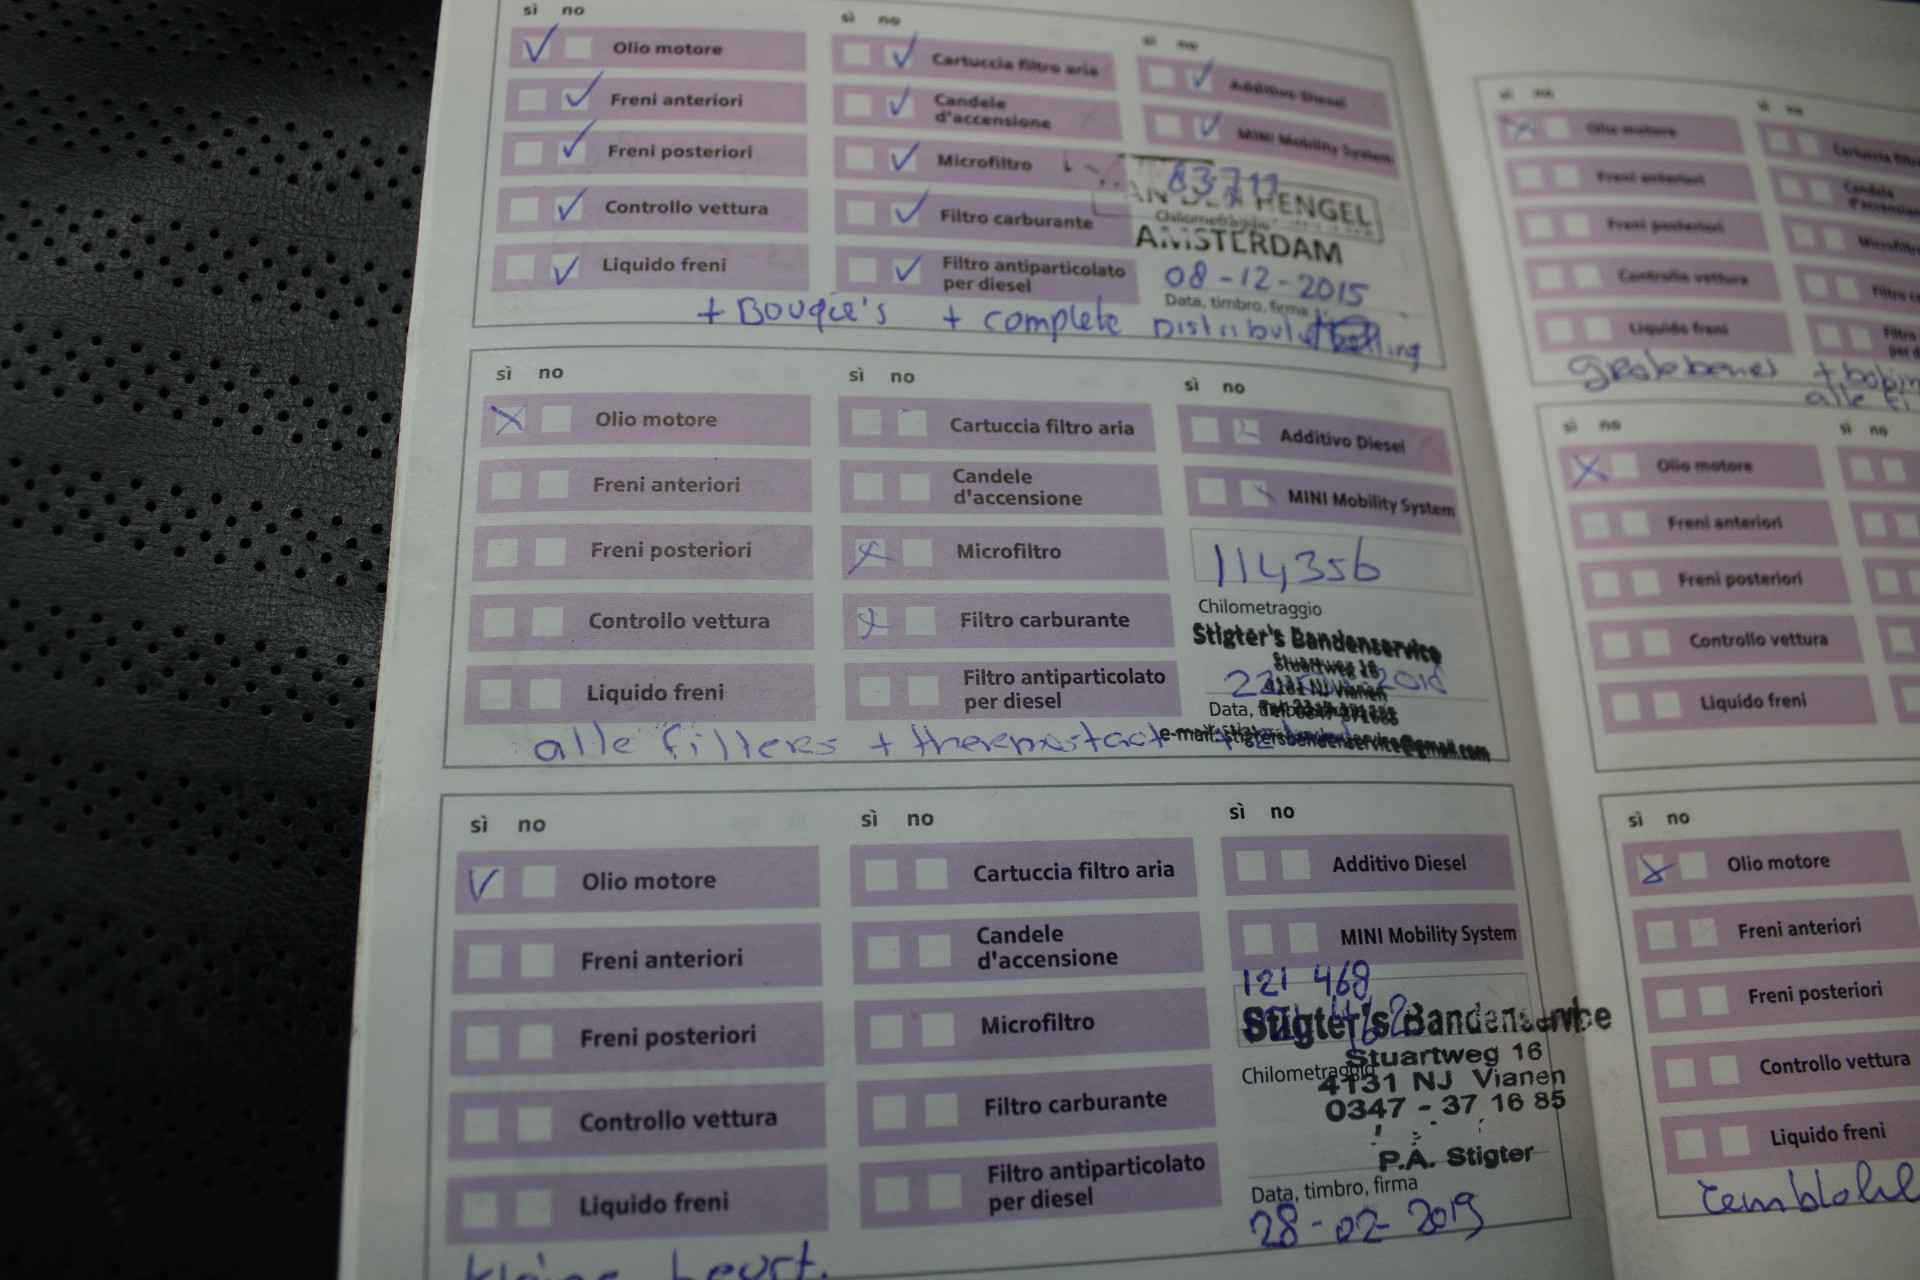 sì no
Olio motore
Freni anteriori
Freni posteriori
Controllo vettura
Liquido freni
sì no
Cartuccia filtro aria
Candele
d'accensione
Microfiltro
Filtro carburante
Filtro antiparticolato
per diesel
sì no
Additivo Diesel
MINI Mobility System
83711
HENGEL
Chilometraggio
AMSTERDAM
08-12-2015
Data, timbro, firma
+ Bougie's + complete
sì no
Olio motore
Freni anteriori
Freni posteriori
Controllo vettura
Liquido freni
sì no
Cartuccia filtro aria
Candele
d'accensione
Microfiltro
Filtro carburante
Filtro antiparticolato
per diesel
sì no
Additivo Diesel
MINI Mobility System
114356
Chilometraggio
Stigter's Bandenservice
Stuartweg 16
4131 NJ Vianen
Data,
e-mail: stigtersbandenservice@gmail.com
alle filters + thermostaat
sì no
Olio motore
Freni anteriori
Freni posteriori
Controllo vettura
Liquido freni
sì no
Cartuccia filtro aria
Candele
d'accensione
Microfiltro
Filtro carburante
Filtro antiparticolato
per diesel
sì no
Additivo Diesel
MINI Mobility System
121 468
Stigter's Bandenservice
Stuartweg 16
Chilometraggio
4131 NJ Vianen
0347 - 37 16 85
P.A. Stigter
Data, timbro, firma
28-02-2019
kleine beurt.
sì no
Olio motore
Freni anteriori
Freni posteriori
Controllo vettura
Liquido freni
Cartuccia
Candele
Microfiltro
Filtro
Filtro
alle
sì no
Olio motore
Freni anteriori
Freni posteriori
Controllo vettura
Liquido freni
sì no
sì no
Olio motore
Freni anteriori
Freni posteriori
Controllo vettura
Liquido freni